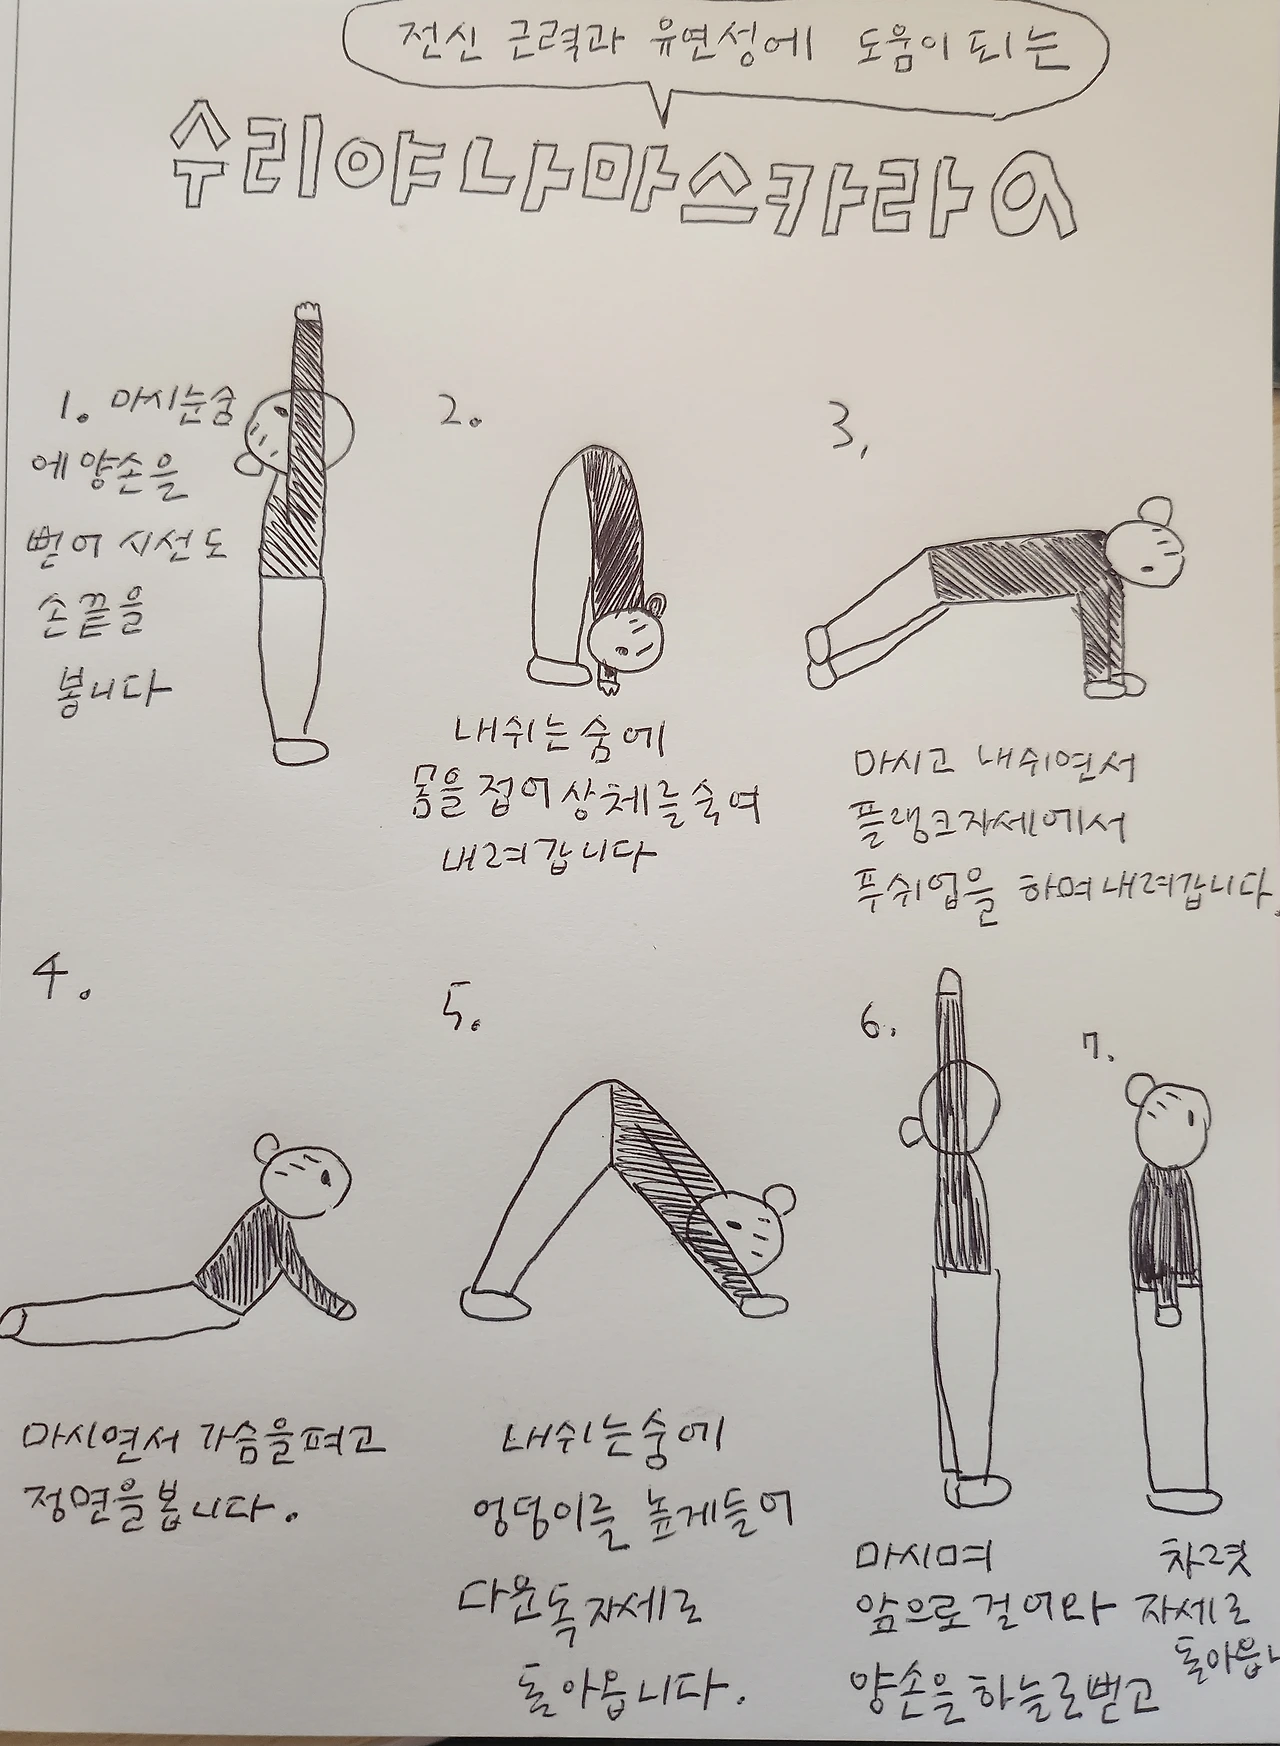 전신 근력과 유연성에 도움이 되는
수리야나마스카라 A
1. 마시는숨
에 양손을
뻗어 시선도
손끝을
봅니다
2.
내쉬는 숨에
몸을 접어 상체를 숙여
내려갑니다
3.
마시고 내쉬면서
플랭크자세에서
푸쉬업을 하며 내려갑니다.
4.
마시면서 가슴을펴고
정면을 봅니다.
5.
내쉬는숨에
엉덩이를 높게들어
다운독 자세로
돌아옵니다.
6.
마시며
앞으로 걸어와
양손을 하늘로 뻗고
7.
차렷
자세로
돌아옵니